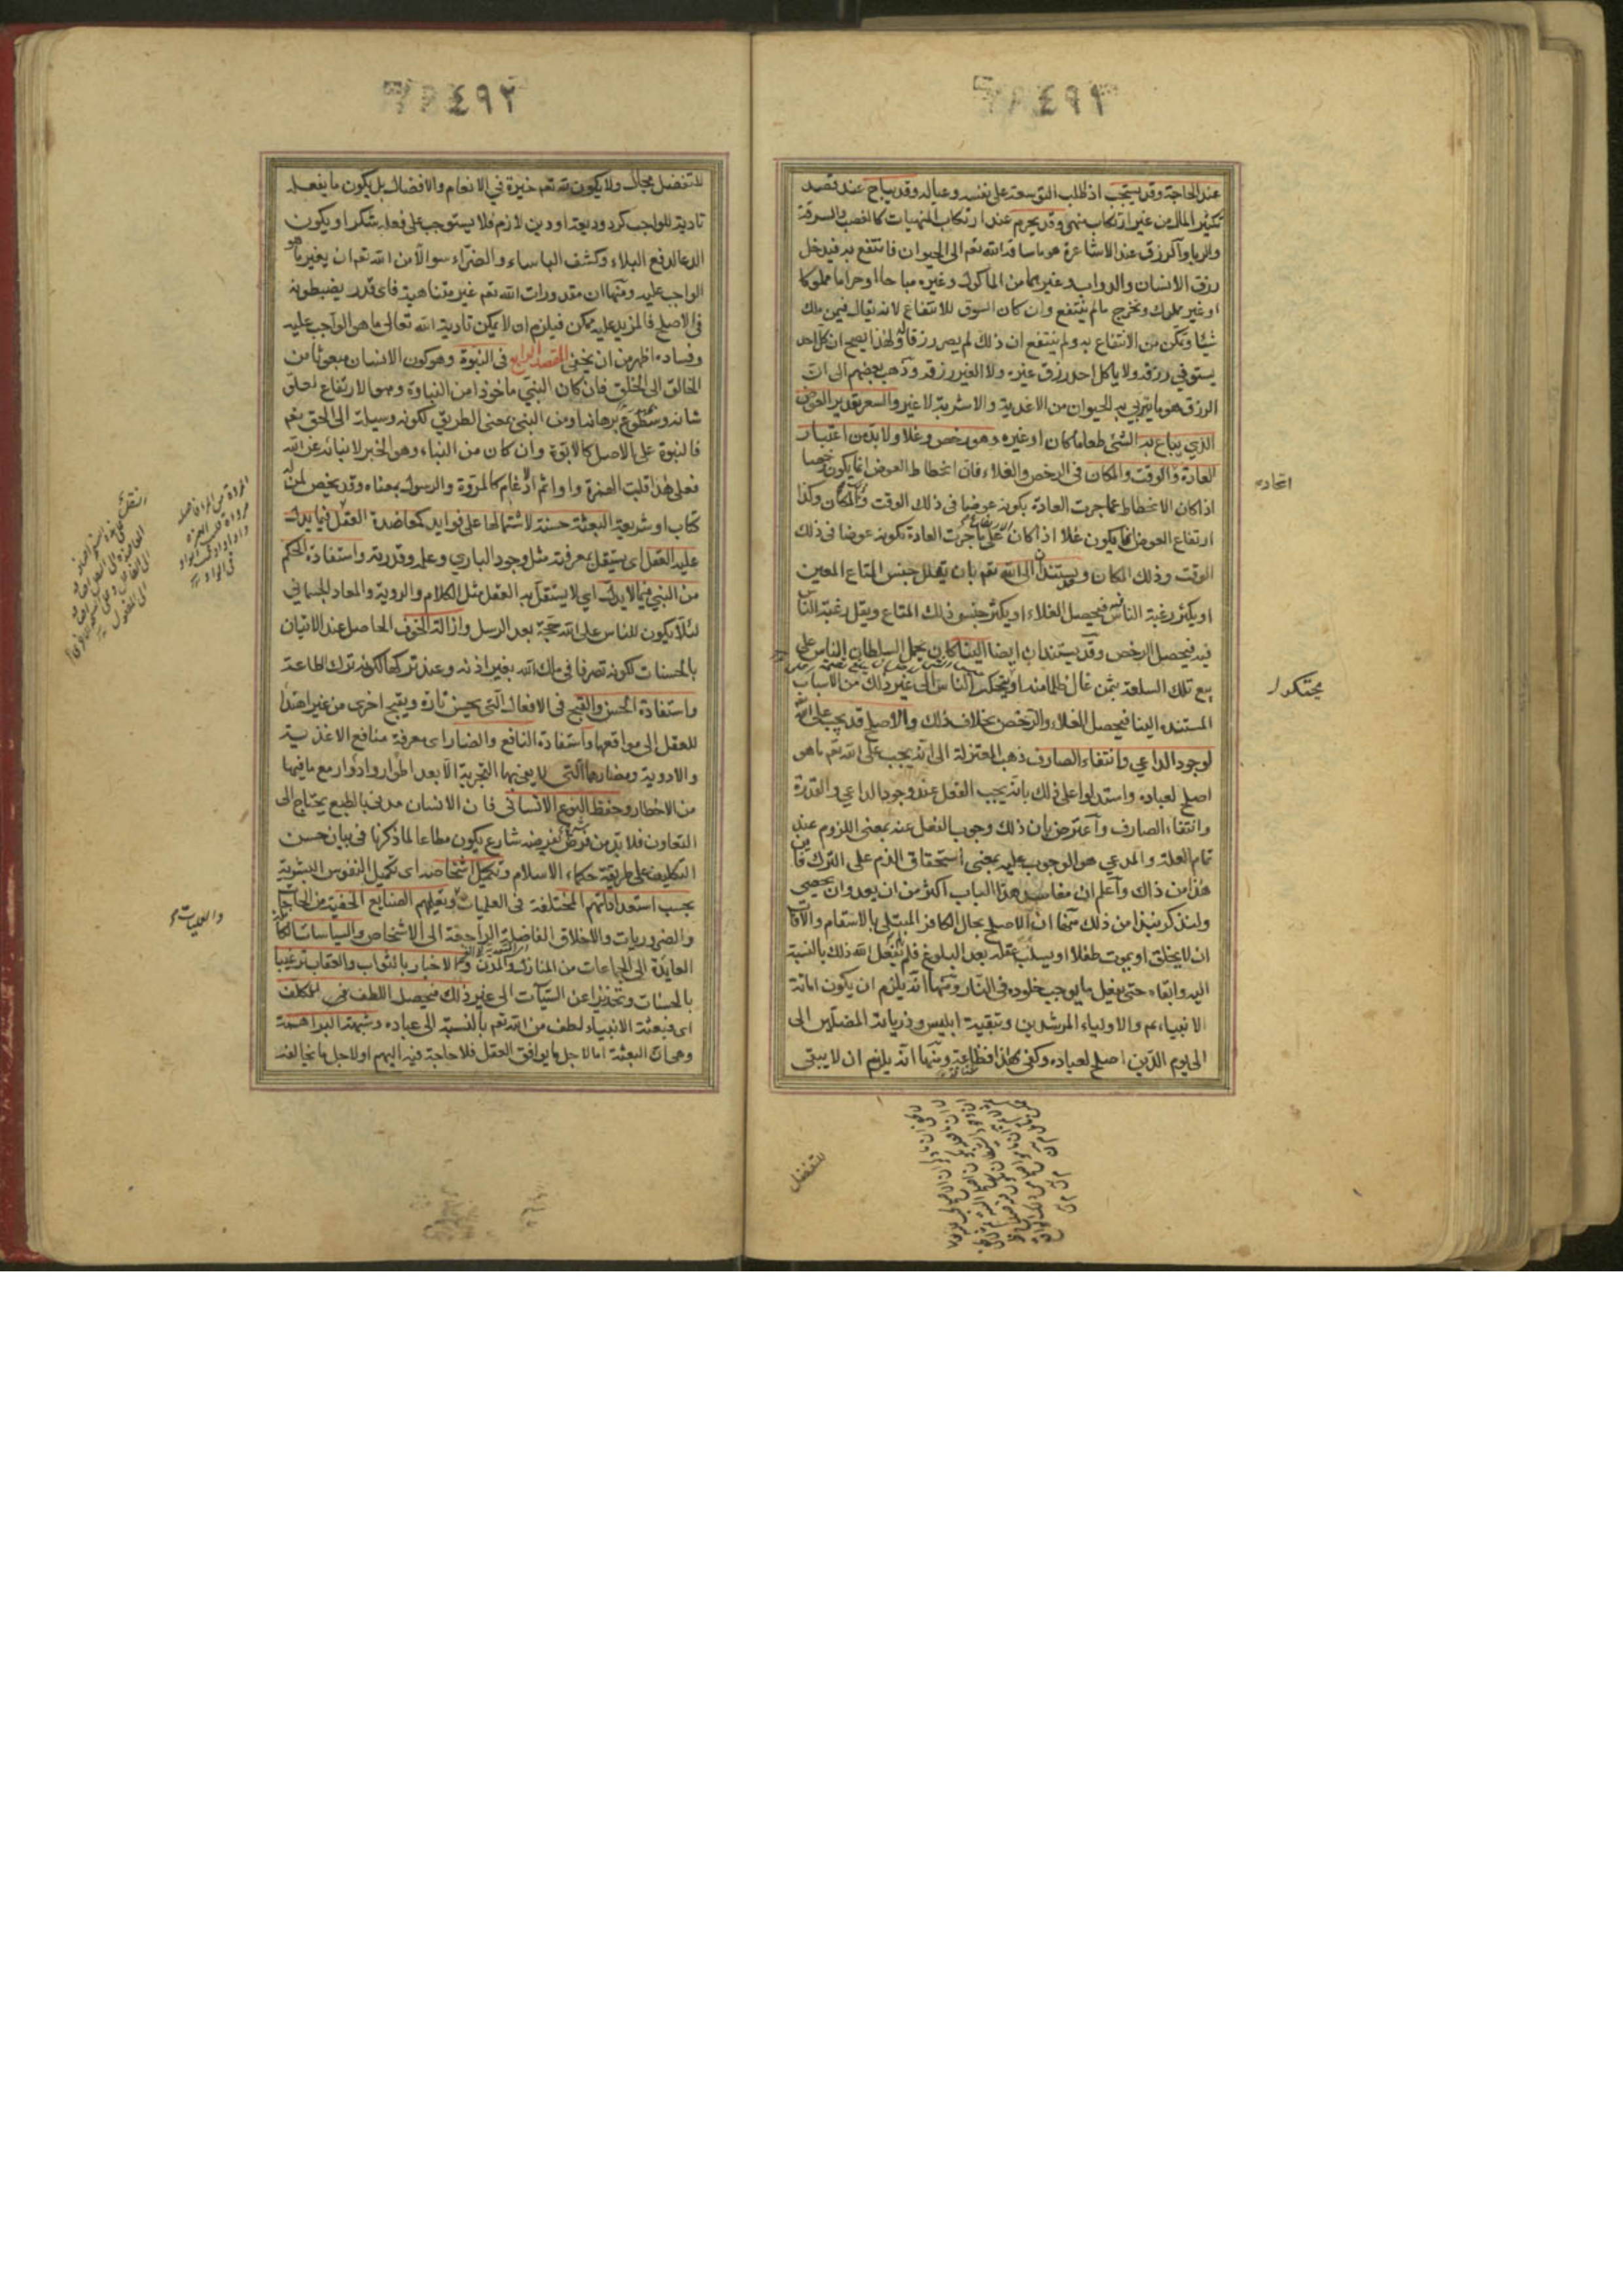 ٤٩١
عند الحاجة وقد يستحب اذ طلب التوسعة على نفسه وعياله وقد يباح عند قصد
تكثير المال من غير ارتكاب منهى وقد يحرم عند ارتكاب المنهيات كالغصب والسرقة
والربا والرزق عند الاشاعرة هو ما ساقه الله تعم الى الحيوان فانتفع به فيدخل
رزق الانسان والدواب وغيرهما من الماكول وغيره مباحا او حراما مملوكا
او غير مملوك ويخرج ما لم ينتفع وان كان السوق للانتفاع لانه يقال فيمن ملك
شيئا وتمكن من الانتفاع به ولم ينتفع ان ذلك لم يصر رزقا له ولهذا يصح ان كل احد
يستوفى رزقه ولا ياكل احد رزق غيره ولا الغير رزقه وذهب بعضهم الى ان
الرزق هو ما يتربى به الحيوان من الاغذية والاشربة لا غير والسعر تقدير العوض
الذي يباع به الشئ طعاما كان او غيره وهو رخص وغلاء ولا بد من اعتبار
العادة والوقت والمكان فى الرخص والغلاء فان انحطاط العوض انما يكون رخصا
اذا كان الانحطاط عما جرت العادة بكونه عوضا فى ذلك الوقت والمكان وكذا
ارتفاع العوض انما يكون غلاء اذا كان الارتفاع على ما جرت العادة بكونه عوضا فى ذلك
الوقت وذلك المكان ويستندان الى الله تعم بان يقلل جنس المتاع المعين
او يكثر رغبة الناس فيه فيحصل الغلاء او يكثر جنس ذلك المتاع ويقل رغبة الناس
فيه فيحصل الرخص وقد يستندان ايضا الينا كان يحمل السلطان الناس على
بيع تلك السلعة بثمن غال ظلما منه او يحتكر الناس الى غير ذلك من الاسباب
المستنده الينا فيحصل الغلاء والرخص بخلاف ذلك والاصلح قد يجب على الله
لوجود الداعي وانتفاء الصارف ذهب المعتزلة الى انه يجب على الله تعم ما هو
اصلح لعباده واستدلوا على ذلك بانه يجب الفعل عند وجود الداعي والقدرة
وانتفاء الصارف واعترض بان ذلك وجوب الفعل عنه بمعنى اللزوم عند
تمام العلة والمدعي هو الوجوب عليه بمعنى استحقاق الذم على الترك فاين
هذا من ذاك واعلم ان مفاسد هذا الباب اكثر من ان يعد وان يحصى
ولنذكر نبذا من ذلك منها ان الاصلح بحال الكافر المبتلى بالاسقام والآفات
ان لا يخلق او يموت طفلا او يسلب عقله بعد البلوغ فلم لم يفعل الله ذلك بالنسبة
اليه وابقاه حتى يفعل ما يوجب خلوده فى النار ومنها انه يلزم ان يكون اماتة
الانبياء عم والاولياء المرشدين وتبقية ابليس وذرياته المضلين الى
الى يوم الدين اصلح لعباده وكفى بهذا فظاعة ومنها انه يلزم ان لا يبقى
للتفضل
محتكرا
٤٩٢
للتفضل مجال ولا يكون لله تعم خيرة في الانعام والافضال بل يكون ما يفعله
تادية للواجب كرد وديعة او دين لازم فلا يستوجب على فعله شكرا ويكون
الدعا لدفع البلاء وكشف الباساء والضراء سوالا من الله تعم ان يغير ما هو
الواجب عليه ومنها ان مقدورات الله تعم غير متناهية فاى قدر يضبطونه
فى الاصلح فالمزيد عليه ممكن فيلزم ان لا يمكن تادية الله تعالى ما هو الواجب عليه
وفساده اظهر من ان يخفى المقصد الرابع فى النبوة وهو كون الانسان مبعوثا من
الخالق الى الخلق فان كان النبي ماخوذا من النباوة وهو الارتفاع لعلو
شانه وسطوع برهانه او من النبي بمعنى الطريق لكونه وسيلة الى الحق تعم
فالنبوة على الاصل كالابوة وان كان من النباء وهو الخبر لانبائه عن الله
فعلى هذا قلبت الهمزة واوا ثم ادغام كالمروة والرسول بمعناه وقد يخص لمن له
كتاب او شريعة البعثة حسنة لاشتمالها على فوايد كمعاضدة العقل فيما يدل
عليه العقل اى يستقل بمعرفته مثل وجود الباري وعلمه وقدرته واستفادة الحكم
من النبي فيما لا يدل اي لا يستقل به العقل مثل الكلام والروية والمعاد الجسماني
لئلا يكون للناس على الله حجة بعد الرسل وازالة الخوف الحاصل عند الاتيان
بالحسنات لكونه تصرفا فى ملك الله بغير اذنه وعند تركها لكونه ترك الطاعة
واستفادة الحسن والقبح فى الافعال التى يحسن تارة ويقبح اخرى من غير اهتداء
للعقل الى مواقعها واستفادة النافع والضار اى معرفة منافع الاغذية
والادوية ومضارها التى لا يفى بها التجربة الا بعد اطوار وادوار مع ما فيها
من الاخطار وحفظ النوع الانسانى فان الانسان مدنى بالطبع يحتاج الى
التعاون فلا بد من شرع يفرضه شارع يكون مطاعا لما ذكرنا فى بيان حسن
التكليف على طريقة حكماء الاسلام وتكميل اشخاصه اى تكميل النفوس البشرية
بحسب استعداداتهم المختلفة فى العلميات وتعليمهم الصنايع الخفية من الحاجات
والضروريات والاخلاق الفاضلة الراجعة الى الاشخاص والسياسات الكاملة
العايدة الى الجماعات من المنازل والمدن والاخبار بالثواب والعقاب ترغيبا
بالحسنات وتحذيرا عن السيآت الى غير ذلك فيحصل اللطف فى المكلف
اى فبعثة الانبياء لطف من الله تعم بالنسبة الى عباده وشبهة البراهمة
وهى ان البعثة اما لاجل ما يوافق العقل فلا حاجة فيه اليهم او لاجل ما يخالفه
والعمليات